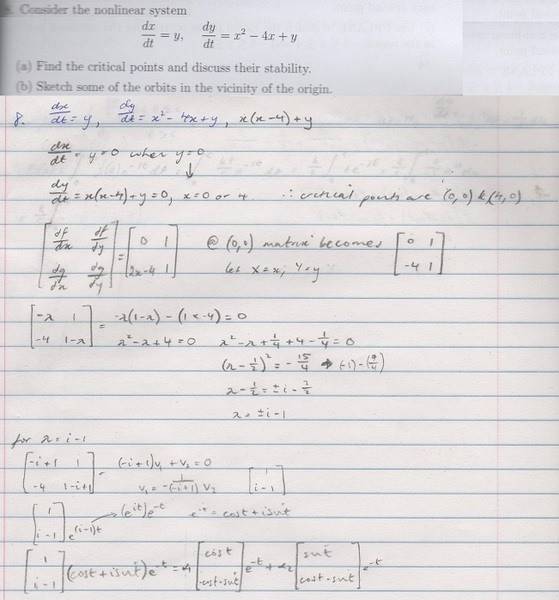 Consider the nonlinear system
dx/dt = y, dy/dt = x² − 4x + y
(a) Find the critical points and discuss their stability.
(b) Sketch some of the orbits in the vicinity of the origin.
8. dx/dt = y, dy/dt = x² − 4x + y, x(x−4)+y
dx/dt = y = 0 when y = 0
↓
dy/dt = x(x−4)+y = 0, x = 0 or 4 ∴ critical points are (0,0) & (4,0)
[df/dx df/dy; dg/dx dg/dy] = [0 1; 2x−4 1] @ (0,0) matrix becomes [0 1; −4 1]
let X = x, Y = y
[−λ 1; −4 1−λ] = −λ(1−λ) − (1×−4) = 0
λ² − λ + 4 = 0 λ² − λ + 1/4 + 4 − 1/4 = 0
(λ − 1/2)² = −15/4 → (−1) − (9/4)
λ − 1/2 = ± i − 3/2
λ = ± i − 1
for λ = i − 1
[−i+1 1; −4 1−i+1] = (−i+1)v₁ + v₂ = 0
v₁ = −1/(−i+1) v₂ [1; i−1]
[1; i−1] e^(i−1)t → (e^it)e^−t e^it = cost + isint
[1; i−1] (cost + isint)e^−t = α₁ [cost; −cost−sint] e^−t + α₂ [sint; cost−sint] e^−t